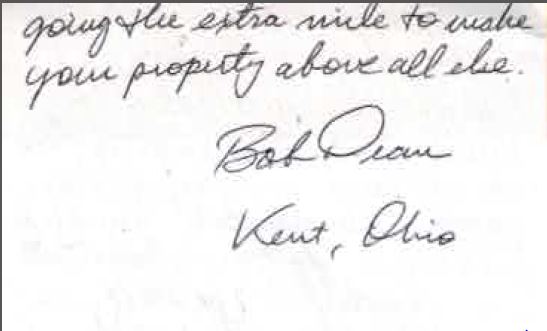 going the extra mile to make
your property above all else.
Bob Dean
Kent, Ohio